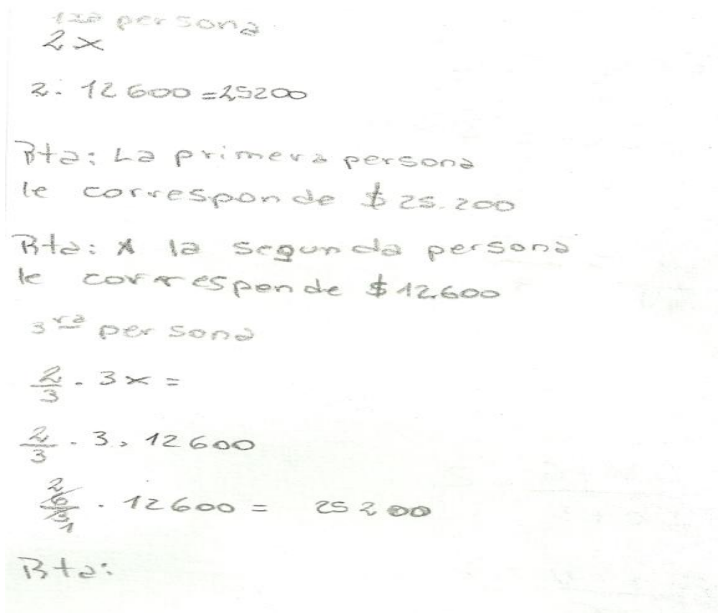 1ra persona
2x
2. 12600 = 25200
Rta: La primera persona
le corresponde $ 25.200
Rta: A la segunda persona
le corresponde $ 12.600
3ra persona
2/3 . 3x =
2/3 . 3 . 12600
6/3 2/1 . 12600 = 25200
Rta: